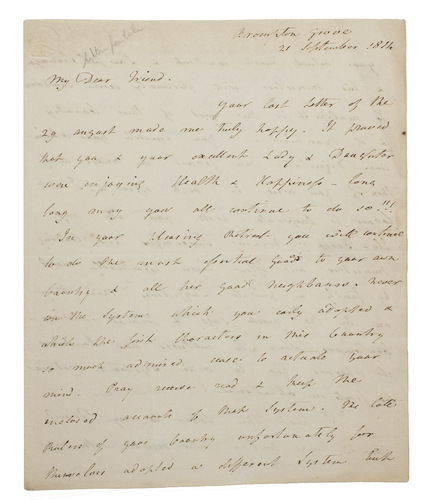 Brompton Grove
21 September 1814
My Dear Friend.
Your last letter of the
29 august made me truly happy. It proved
that you & your excellent Lady & Daughter
were enjoying Health & Happiness – long
long may you all continue to do so!!!
In your pleasing Retreat you will continue
to do the most essential Good to your own
Country & all her good neighbours. never
can the System which you early adopted &
which the first Characters in this Country
so much admired cease to actuate your
mind. Pray receive read & keep the
enclosed accounts to that System. The late
Rulers of your Country unfortunately for
themselves adopted a different System but